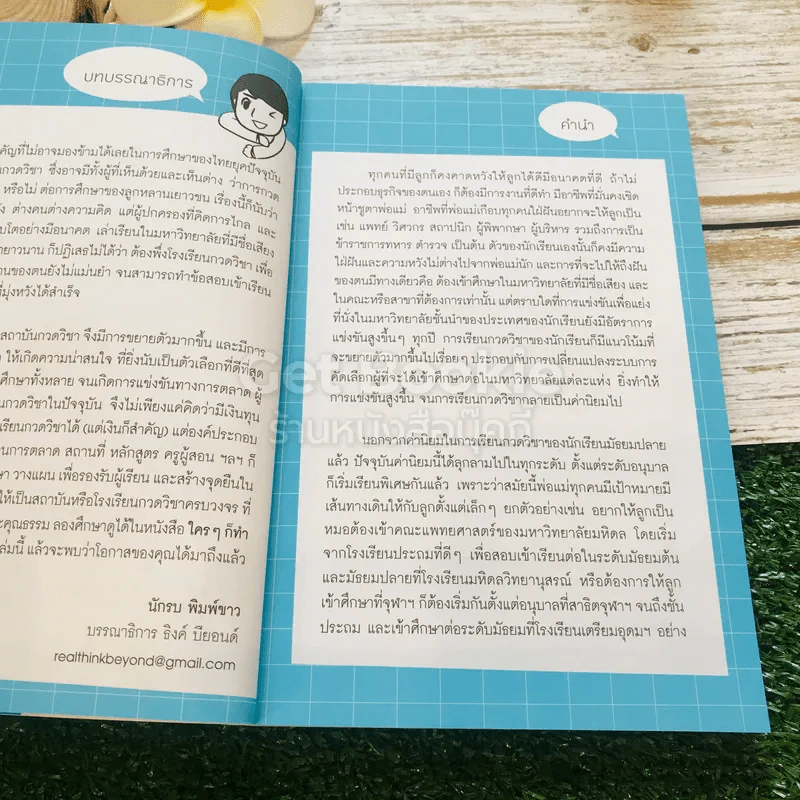 บทบรรณาธิการ
คัญที่ไม่อาจมองข้ามได้เลยในการศึกษาของไทยยุคปัจจุบัน
กวดวิชา ซึ่งอาจมีทั้งผู้ที่เห็นด้วยและเห็นต่าง ว่าการกวด
หรือไม่ ต่อการศึกษาของลูกหลานเยาวชน เรื่องนี้ก็นับว่า
ต่างคนต่างความคิด แต่ผู้ปกครองที่คิดการไกล และ
บโตอย่างมีอนาคต เล่าเรียนในมหาวิทยาลัยที่มีชื่อเสียง
ยาวนาน ก็ปฏิเสธไม่ได้ว่า ต้องพึ่งโรงเรียนกวดวิชา เพื่อ
านของตนยังไม่แม่นยำ จนสามารถทำข้อสอบเข้าเรียน
ที่มุ่งหวังได้สำเร็จ
สถาบันกวดวิชา จึงมีการขยายตัวมากขึ้น และมีการ
ให้เกิดความน่าสนใจ ที่ยิ่งนับเป็นตัวเลือกที่ดีที่สุด
ศึกษาทั้งหลาย จนเกิดการแข่งขันทางการตลาด ผู้
นกวดวิชาในปัจจุบัน จึงไม่เพียงแค่คิดว่ามีเงินทุน
กวดวิชาได้ (แต่เงินก็สำคัญ) แต่องค์ประกอบ
นการตลาด สถานที่ หลักสูตร ครูผู้สอน ฯลฯ ก็
ษา วางแผน เพื่อรองรับผู้เรียน และสร้างจุดยืนใน
ให้เป็นสถาบันหรือโรงเรียนกวดวิชาครบวงจร ที่
ะคุณธรรม ลองศึกษาดูได้ในหนังสือ ใครๆ ก็ทำ
ล่มนี้ แล้วจะพบว่าโอกาสของคุณได้มาถึงแล้ว
นักรบ พิมพ์ขาว
บรรณาธิการ ธิงค์ บียอนด์
realthinkbeyond@gmail.com
คำนำ
ทุกคนที่มีลูกก็คงคาดหวังให้ลูกได้ดีมีอนาคตที่ดี ถ้าไม่
ประกอบธุรกิจของตนเอง ก็ต้องมีการงานที่ดีทำ มีอาชีพที่มั่นคงเชิด
หน้าชูตาพ่อแม่ อาชีพที่พ่อแม่เกือบทุกคนใฝ่ฝันอยากจะให้ลูกเป็น
เช่น แพทย์ วิศวกร สถาปนิก ผู้พิพากษา ผู้บริหาร รวมถึงการเป็น
ข้าราชการทหาร ตำรวจ เป็นต้น ตัวของนักเรียนเองนั้นก็คงมีความ
ใฝ่ฝันและความหวังไม่ต่างไปจากพ่อแม่นัก และการที่จะไปให้ถึงฝัน
ของตนมีทางเดียวคือ ต้องเข้าศึกษาในมหาวิทยาลัยที่มีชื่อเสียง และ
ในคณะหรือสาขาที่ต้องการเท่านั้น แต่ตราบใดที่การแข่งขันเพื่อแย่ง
ที่นั่งในมหาวิทยาลัยชั้นนำของประเทศของนักเรียนยังมีอัตราการ
แข่งขันสูงขึ้นๆ ทุกปี การเรียนกวดวิชาของนักเรียนก็มีแนวโน้มที่
จะขยายตัวมากขึ้นไปเรื่อยๆ ประกอบกับการเปลี่ยนแปลงระบบการ
คัดเลือกผู้ที่จะได้เข้าศึกษาต่อในมหาวิทยาลัยแต่ละแห่ง ยิ่งทำให้
การแข่งขันสูงขึ้น จนการเรียนกวดวิชากลายเป็นค่านิยมไป
Get Bookie
ร้านหนังสือบุ๊คกี้
นอกจากค่านิยมในการเรียนกวดวิชาของนักเรียนมัธยมปลาย
แล้ว ปัจจุบันค่านิยมนี้ได้ลุกลามไปในทุกระดับ ตั้งแต่ระดับอนุบาล
ก็เริ่มเรียนพิเศษกันแล้ว เพราะว่าสมัยนี้พ่อแม่ทุกคนมีเป้าหมายมี
เส้นทางเดินให้กับลูกตั้งแต่เล็กๆ ยกตัวอย่างเช่น อยากให้ลูกเป็น
หมอต้องเข้าคณะแพทยศาสตร์ของมหาวิทยาลัยมหิดล โดยเริ่ม
จากโรงเรียนประถมที่ดีๆ เพื่อสอบเข้าเรียนต่อในระดับมัธยมต้น
และมัธยมปลายที่โรงเรียนมหิดลวิทยานุสรณ์ หรือต้องการให้ลูก
เข้าศึกษาที่จุฬาฯ ก็ต้องเริ่มกันตั้งแต่อนุบาลที่สาธิตจุฬาฯ จนถึงชั้น
ประถม และเข้าศึกษาต่อระดับมัธยมที่โรงเรียนเตรียมอุดมฯ อย่าง